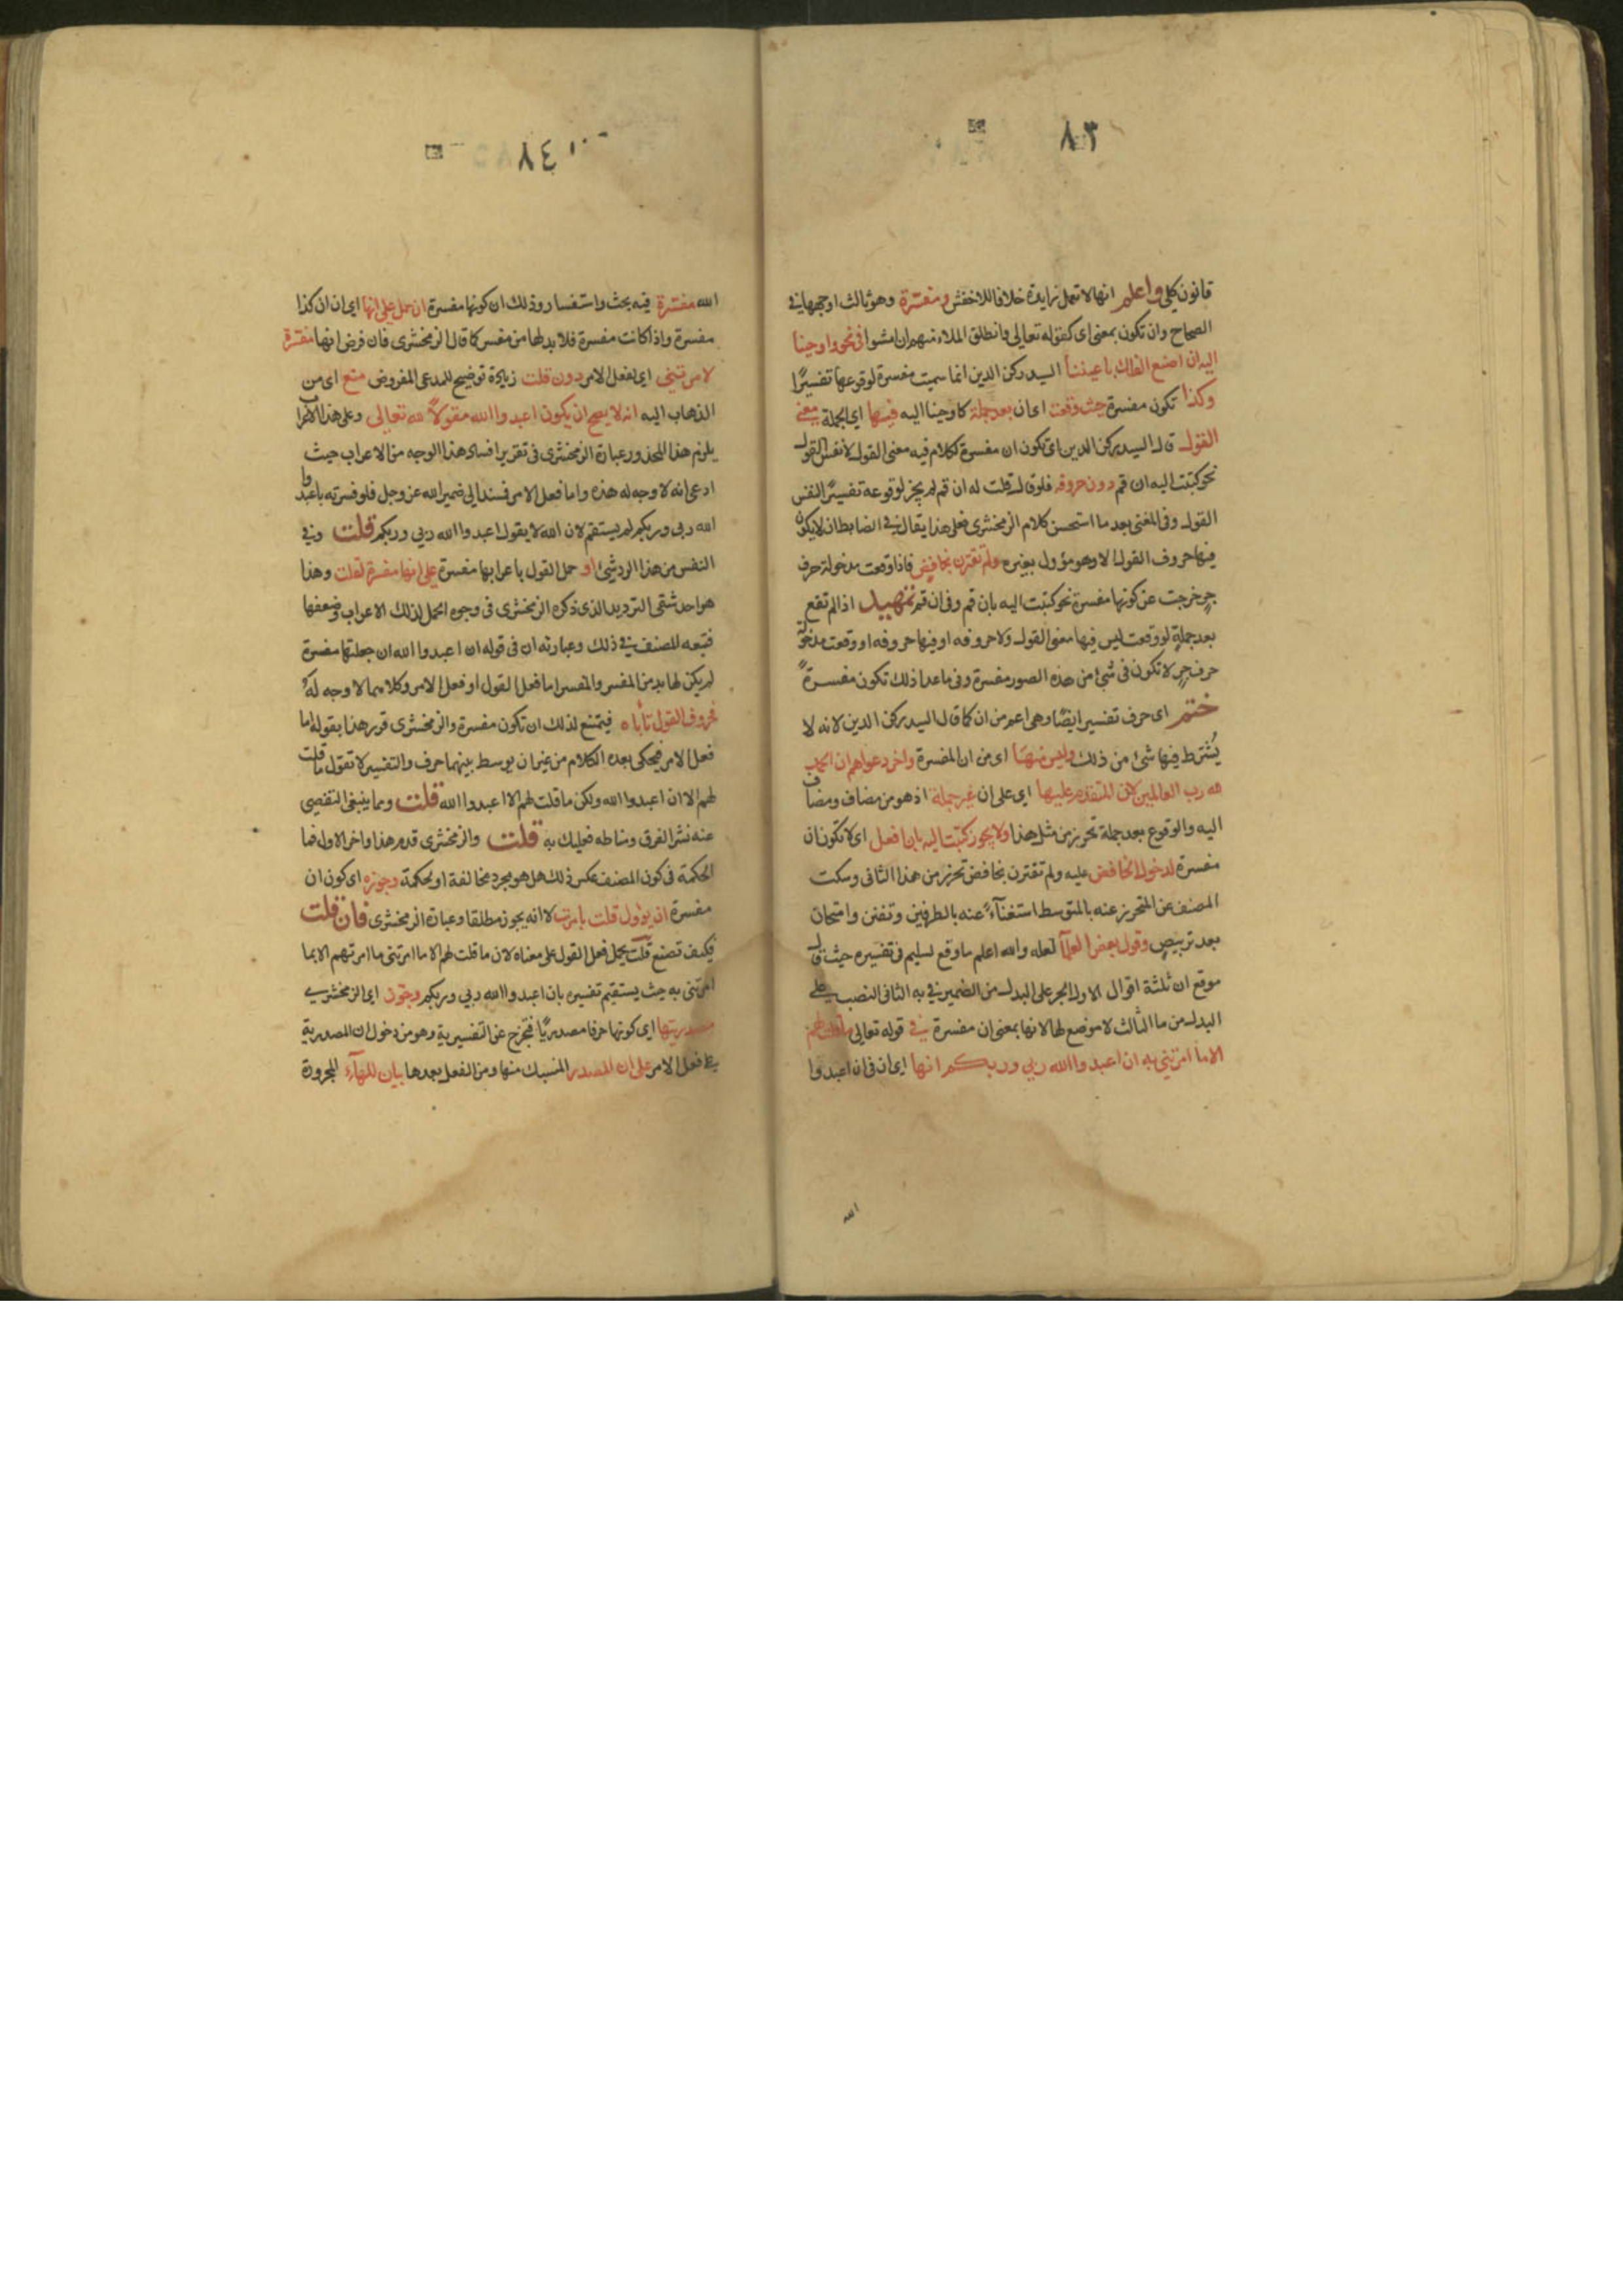 ٨٣
قانون كلي واعلم انها لا تعمل زايدة خلافا للاخفش ومفسرة وهو ثالث اوجهها في
الصحاح وان تكون بمعنى اى كقوله تعالى وانطلق الملاء منهم ان امشوا فى نحو واوحينا
اليه ان اصنع الفلك باعيننا السيد ركن الدين انما سميت مفسرة لوقوعها تفسيرًا
وكذا تكون مفسرة حيث وقعت اى ان بعد جملة كاوحينا اليه فيها اي الجملة معنى
القول قال السيد ركن الدين اى تكون ان مفسرة لكلام فيه معنى القول لا نفس القول
نحو كتبت اليه ان قم دون حروفه فلو قال قلت له ان قم لم يجز لوقوعه تفسيرًا لنفس
القول وفى المغنى بعد ما استحسن كلام الزمخشرى فعلى هذا يقال فى الضابط ان لا يكون
فيها حروف القول الا وهو مؤول بغيره ولم تقترن بخافض فاذا وقعت مدخولة حرف
جر خرجت عن كونها مفسرة نحو كتبت اليه بان قم وفى ان قم تمهيد اذا لم تقع
بعد جملة او وقعت ليس فيها معنى القول ولا حروفه او فيها حروفه او وقعت مدخول
حرف جر لا تكون فى شئ من هذه الصور مفسرة وفى ما عدا ذلك تكون مفسرةً
ختم اى حرف تفسير ايضًا وهى اعم من ان كما قال السيد ركن الدين لانه لا
يُشترط فيها شئ من ذلك وليس منها اى من ان المفسرة واخر دعواهم ان الحمد
لله رب العالمين لان المتقدم عليها اي على ان غير جملة اذ هو من مضاف ومضاف
اليه والوقوع بعد جملة تحرز من مثل هذا ولا يجوز كتبت اليه بان افعل اى لا تكون ان
مفسرة لدخول الخافض عليه ولم تقترن بخافض تحرز من هذا الثانى وسكت
المصنف عن المتحرز عنه بالمتوسط استغنآءً عنه بالطرفين وتفنن وامتحان
بعد تربيص وقول بعض العلمآ لعله والله اعلم ما وقع لسليم فى تفسيره حيث قال
موقع ان ثلثة اقوال الاول الجر على البدل من الضمير فى به الثانى النصب على
البدل من ما الثالث لا موضع لها لانها بمعنى ان مفسرة فى قوله تعالى ما قلت لهم
الا ما امرتني به ان اعبدوا الله ربي وربكم انها اى ان فى ان اعبدوا
الله
٨٤
الله مفسرة فيه بحث واستفسار وذلك ان كونها مفسرة ان حمل على انها اي ان ان كذا
مفسرة واذا كانت مفسرة فلا بد لها من مفسر كما قال الزمخشرى فان فرض انها مفسرة
لامرتني اى لفعل الامر دون قلت زيادة توضيح للمدعى المفروض منع اى من
الذهاب اليه انه لا يصح ان يكون اعبدوا الله مقولاً لله تعالى وعلى هذا الاعراب
يلزم هذا المحذور عبارة الزمخشرى فى تقرير افساد هذا الوجه من الاعراب حيث
ادعى انه لا وجه له هذه واما فعل الامر فمسند الى ضمير الله عز وجل فلو فسرته باعبدوا
الله ربى وربكم لم يستقم لان الله لا يقول اعبدوا الله ربي وربكم قلت وفي
النفس من هذا الرد شئ او حمل القول باعرابها مفسرة على انها مفسرة لقلت وهذا
هو احد شقى الترديد الذى ذكره الزمخشرى فى وجوه المحمل لذلك الاعراب وضعفها
فتبعه المصنف في ذلك وعبارته ان فى قوله ان اعبدوا الله ان جعلتها مفسرة
لم يكن لها بد من المفسر والمفسر اما فعل القول او فعل الامر وكلاهما لا وجه له
فحروف القول تأباه فيمتنع لذلك ان تكون مفسرة والزمخشرى قرر هذا بقوله اما
فعل الامر فيحكى بعده الكلام من غير ان يوسط بينهما حرف والتفسير لا تقول ما قلت
لهم الا ان اعبدوا الله ولكن ما قلت لهم الا اعبدوا الله قلت ومما ينبغى التفصى
عنه نشر الفرق ومناطه فعليك به قلت والزمخشرى قدم هذا واخر الاول فما
الحكمة فى كون المصنف عكس ذلك هل هو مجرد مخالفة او لحكمة وجوزه اى كون ان
مفسرة ان يؤول قلت بامرت لا انه يجوز مطلقا وعبارة الزمخشرى فان قلت
فكيف تصنع قلت يحمل فعل القول على معناه لان ما قلت لهم الا ما امرتنى ما امرتهم الا بما
امرتنى به حيث يستقيم تفسيره بان اعبدوا الله ربي وربكم وجوز اى الزمخشرى
مصدريتها اى كونها حرفا مصدريًا فتخرج عن التفسيرية وهو من دخول ان المصدرية
على فعل الامر على ان المصدر المنسبك منها ومن الفعل بعدها بيان للهآء المجرورة